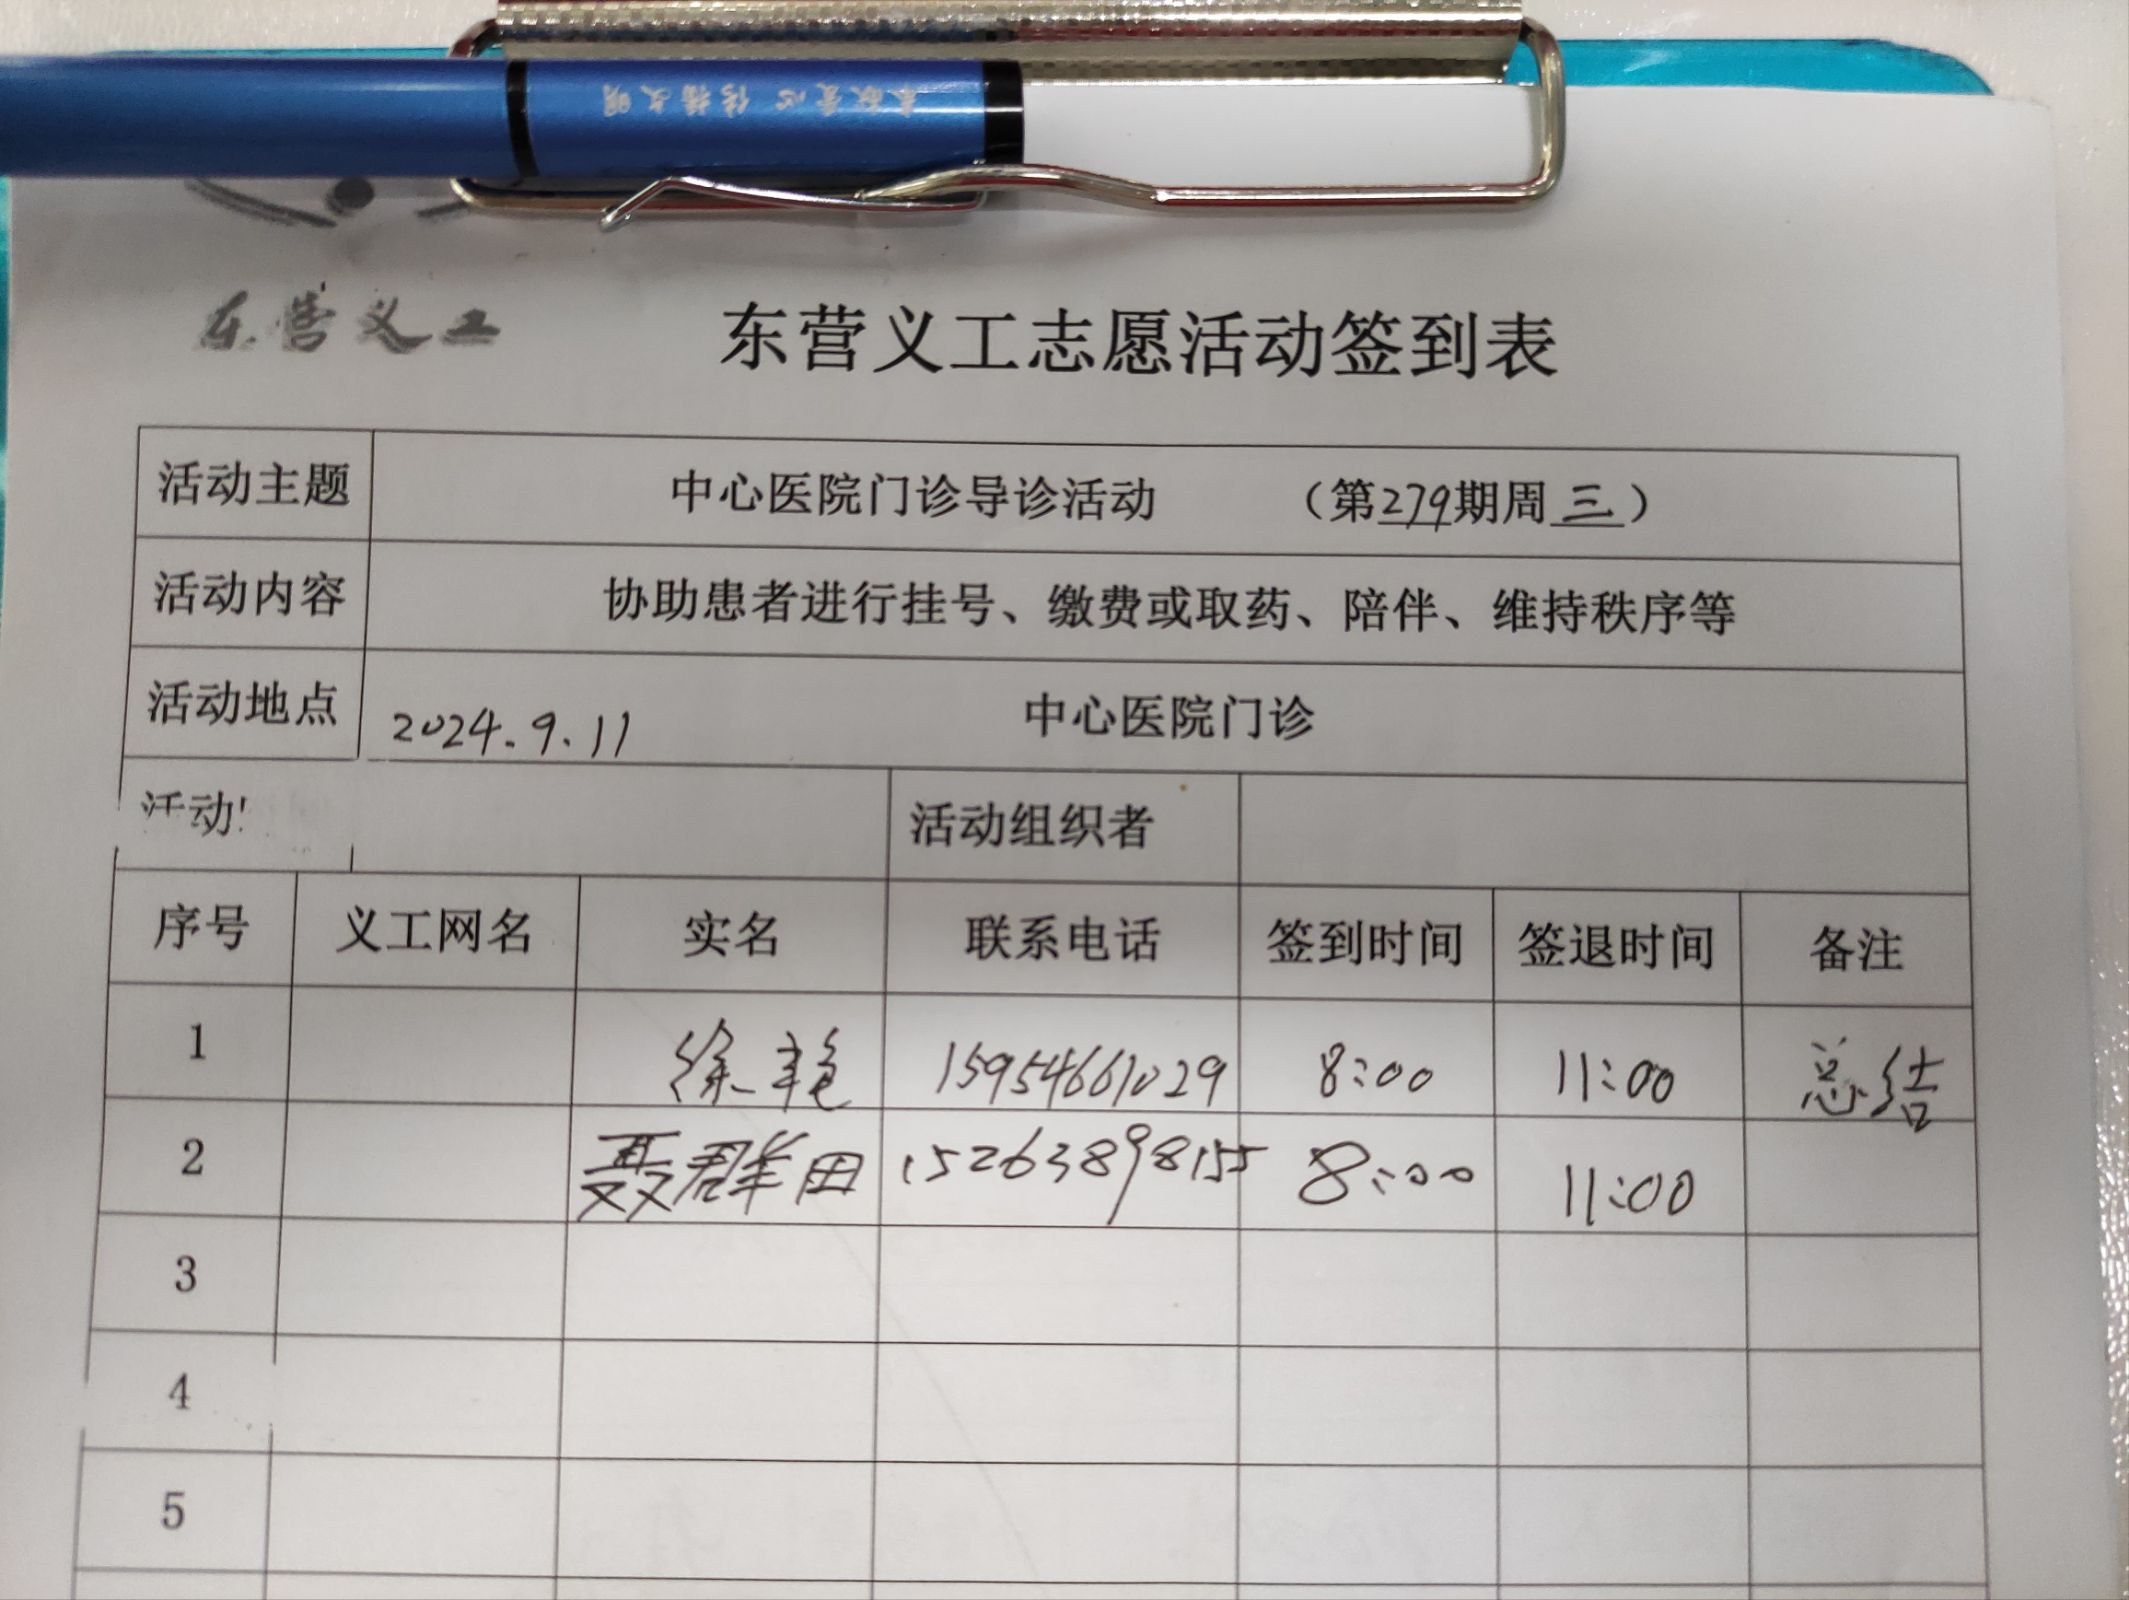 奉献爱心 传播文明
东营义工
东营义工志愿活动签到表
活动主题 中心医院门诊导诊活动 (第279期周三)
活动内容 协助患者进行挂号、缴费或取药、陪伴、维持秩序等
活动地点 2024.9.11 中心医院门诊
活动 活动组织者
序号 义工网名 实名 联系电话 签到时间 签退时间 备注
1 徐艳 15954661029 8:00 11:00 总结
2 聂群田 15263898155 8:00 11:00
3
4
5